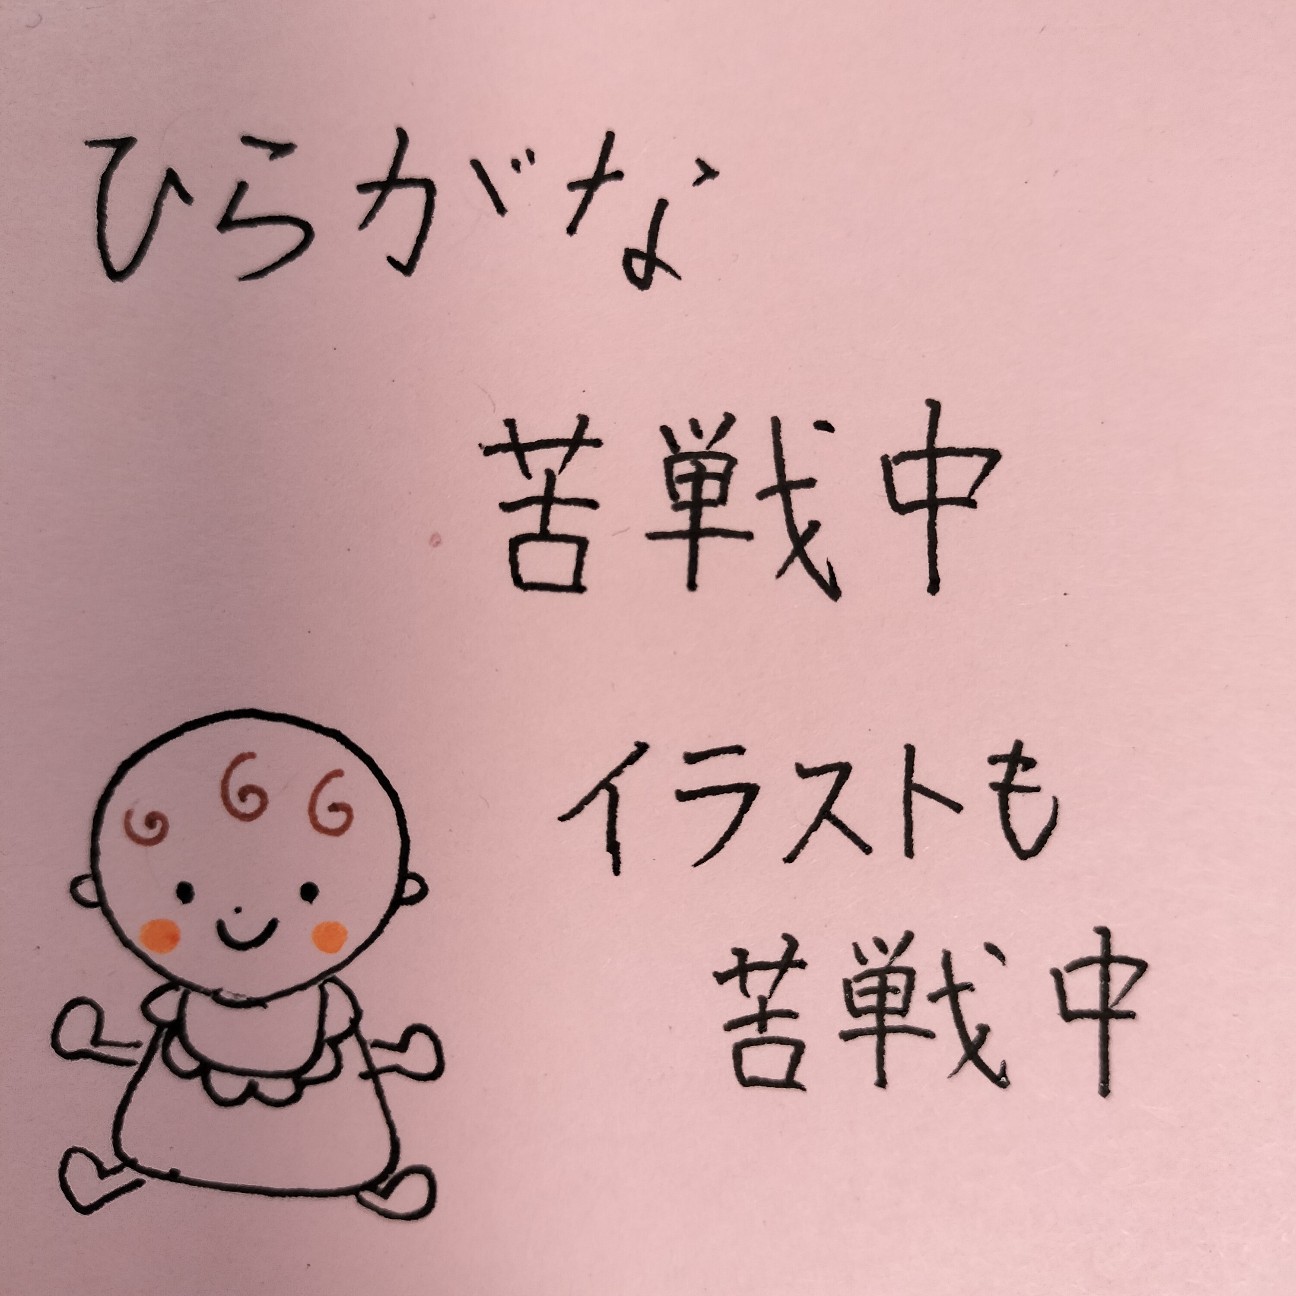 ひらがな
苦戦中
イラストも
苦戦中